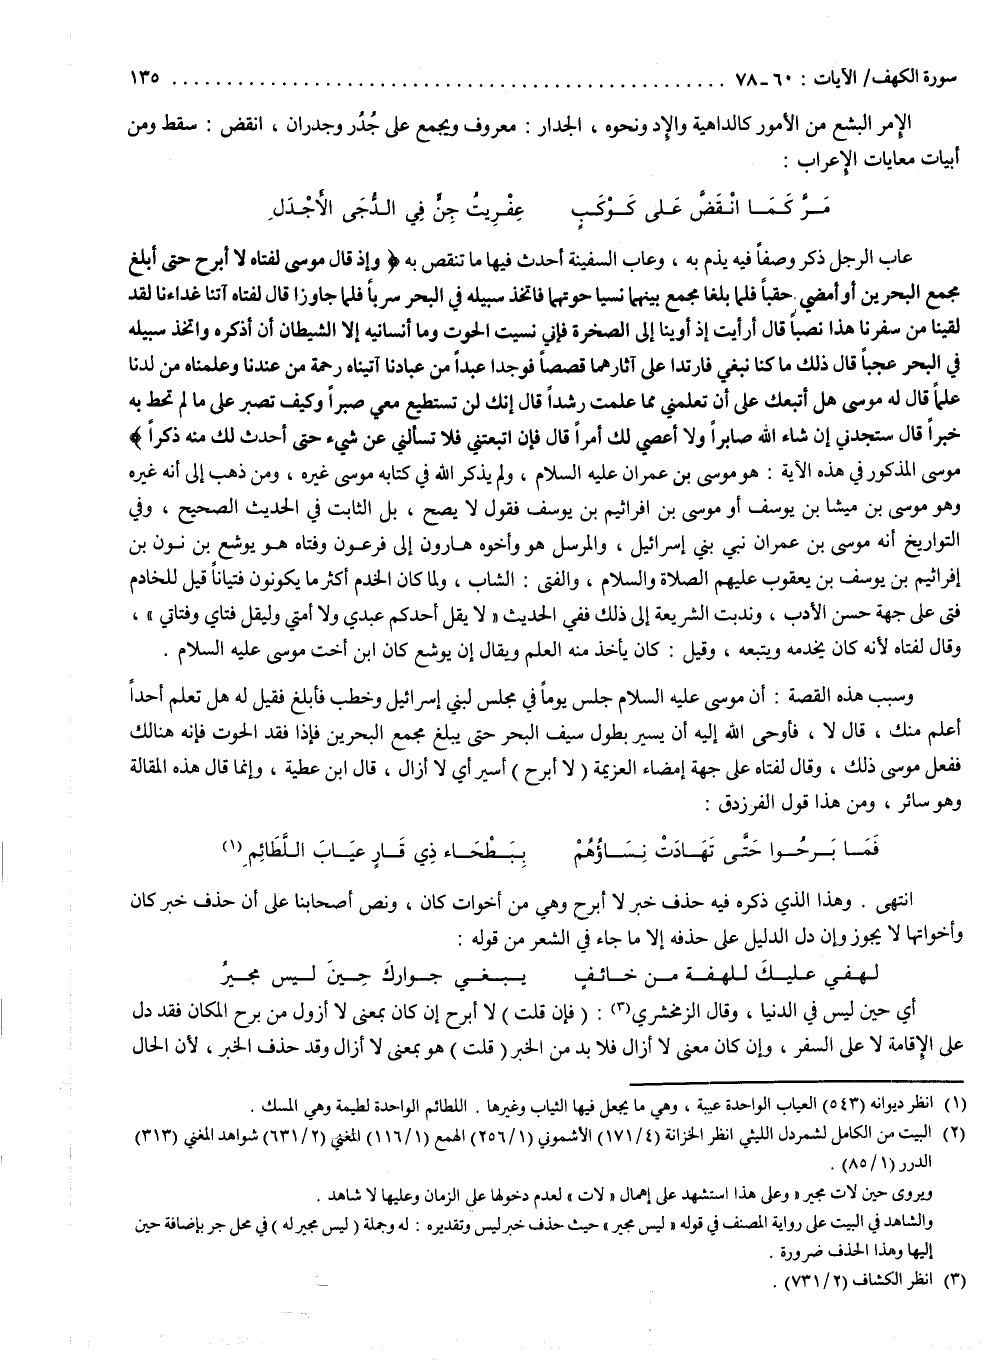 سورة الكهف/ الآيات : ٦٠ـ٧٨ ........................................................ ١٣٥
الإمر البشع من الأمور كالداهية والإد ونحوه ، الجدار : معروف ويجمع على جُدُر وجدران ، انقض : سقط ومن
أبيات معايات الإعراب :
مَـرَّ كَـمَـا انْـقَـضَّ عَـلى كَـوْكَـبٍ عِفْـرِيـتُ جِنٍّ فِي الـدُّجَى الأَجْـدَلِ
عاب الرجل ذكر وصفاً فيه يذم به ، وعاب السفينة أحدث فيها ما تنقص به ﴿ وإذ قال موسى لفتاه لا أبرح حتى أبلغ
مجمع البحرين أو أمضي حقباً فلما بلغا مجمع بينهما نسيا حوتهما فاتخذ سبيله في البحر سرباً فلما جاوزا قال لفتاه آتنا غداءنا لقد
لقينا من سفرنا هذا نصباً قال أرأيت إذ أوينا إلى الصخرة فإني نسيت الحوت وما أنسانيه إلا الشيطان أن أذكره واتخذ سبيله
في البحر عجباً قال ذلك ما كنا نبغي فارتدا على آثارهما قصصاً فوجدا عبداً من عبادنا آتيناه رحمة من عندنا وعلمناه من لدنا
علماً قال له موسى هل أتبعك على أن تعلمني مما علمت رشداً قال إنك لن تستطيع معي صبراً وكيف تصبر على ما لم تحط به
خبراً قال ستجدني إن شاء الله صابراً ولا أعصي لك أمراً قال فإن اتبعتني فلا تسألني عن شيء حتى أحدث لك منه ذكراً ﴾
موسى المذكور في هذه الآية : هو موسى بن عمران عليه السلام ، ولم يذكر الله في كتابه موسى غيره ، ومن ذهب إلى أنه غيره
وهو موسى بن ميشا بن يوسف أو موسى بن افراثيم بن يوسف فقول لا يصح ، بل الثابت في الحديث الصحيح ، وفي
التواريخ أنه موسى بن عمران نبي بني إسرائيل ، والمرسل هو وأخوه هارون إلى فرعون وفتاه هو يوشع بن نون بن
إفراثيم بن يوسف بن يعقوب عليهم الصلاة والسلام ، والفتى : الشاب ، ولما كان الخدم أكثر ما يكونون فتياناً قيل للخادم
فتى على جهة حسن الأدب ، وندبت الشريعة إلى ذلك ففي الحديث « لا يقل أحدكم عبدي ولا أمتي وليقل فتاي وفتاتي » ،
وقال لفتاه لأنه كان يخدمه ويتبعه ، وقيل : كان يأخذ منه العلم ويقال إن يوشع كان ابن أخت موسى عليه السلام .
وسبب هذه القصة : أن موسى عليه السلام جلس يوماً في مجلس لبني إسرائيل وخطب فأبلغ فقيل له هل تعلم أحداً
أعلم منك ، قال لا ، فأوحى الله إليه أن يسير بطول سيف البحر حتى يبلغ مجمع البحرين فإذا فقد الحوت فإنه هنالك
ففعل موسى ذلك ، وقال لفتاه على جهة إمضاء العزيمة ( لا أبرح ) أسير أي لا أزال ، قال ابن عطية ، وإنما قال هذه المقالة
وهو سائر ، ومن هذا قول الفرزدق :
فَمَـا بَـرِحُـوا حَتَّى تَهَـادَتْ نِسَـاؤُهُمْ بِبَـطْحَـاء ذِي قَـارٍ عِيَـابَ اللَّطَائِمِ (١)
انتهى . وهذا الذي ذكره فيه حذف خبر لا أبرح وهي من أخوات كان ، ونص أصحابنا على أن حذف خبر كان
وأخواتها لا يجوز وإن دل الدليل على حذفه إلا ما جاء في الشعر من قوله :
لهـفـي عـليـكَ للهـفـة مـن خـائـفٍ يـبـغـي جـوارك حِيـنَ ليـس مجـيرُ
أي حين ليس في الدنيا ، وقال الزمخشري(٣) : ( فإن قلت ) لا أبرح إن كان بمعنى لا أزول من برح المكان فقد دل
على الإقامة لا على السفر ، وإن كان معنى لا أزال فلا بد من الخبر ( قلت ) هو بمعنى لا أزال وقد حذف الخبر ، لأن الحال
(١) انظر ديوانه (٥٤٣) العياب الواحدة عيبة ، وهي ما يجعل فيها الثياب وغيرها . اللطائم الواحدة لطيمة وهي المسك .
(٢) البيت من الكامل لشمردل الليثي انظر الخزانة (١٧١/٤) الأشموني (٢٥٦/١) الهمع (١١٦/١) المغني (٦٣١/٢) شواهد المغني (٣١٣)
الدرر (٨٥/١) .
ويروى حين لات مجير « وعلى هذا استشهد على إهمال « لات » لعدم دخولها على الزمان وعليها لا شاهد .
والشاهد في البيت على رواية المصنف في قوله « ليس مجير » حيث حذف خبر ليس وتقديره : له وجملة ( ليس مجير له ) في محل جر بإضافة حين
إليها وهذا الحذف ضرورة .
(٣) انظر الكشاف (٧٣١/٢) .